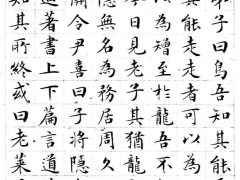 弟子曰鳥吾知其能
其能走走者可以為
以為矰至於龍吾不
今日見老子其猶龍
隱無名為務居周久
關令尹喜曰子將隱
著書上下篇言道
知其所終或曰老萊